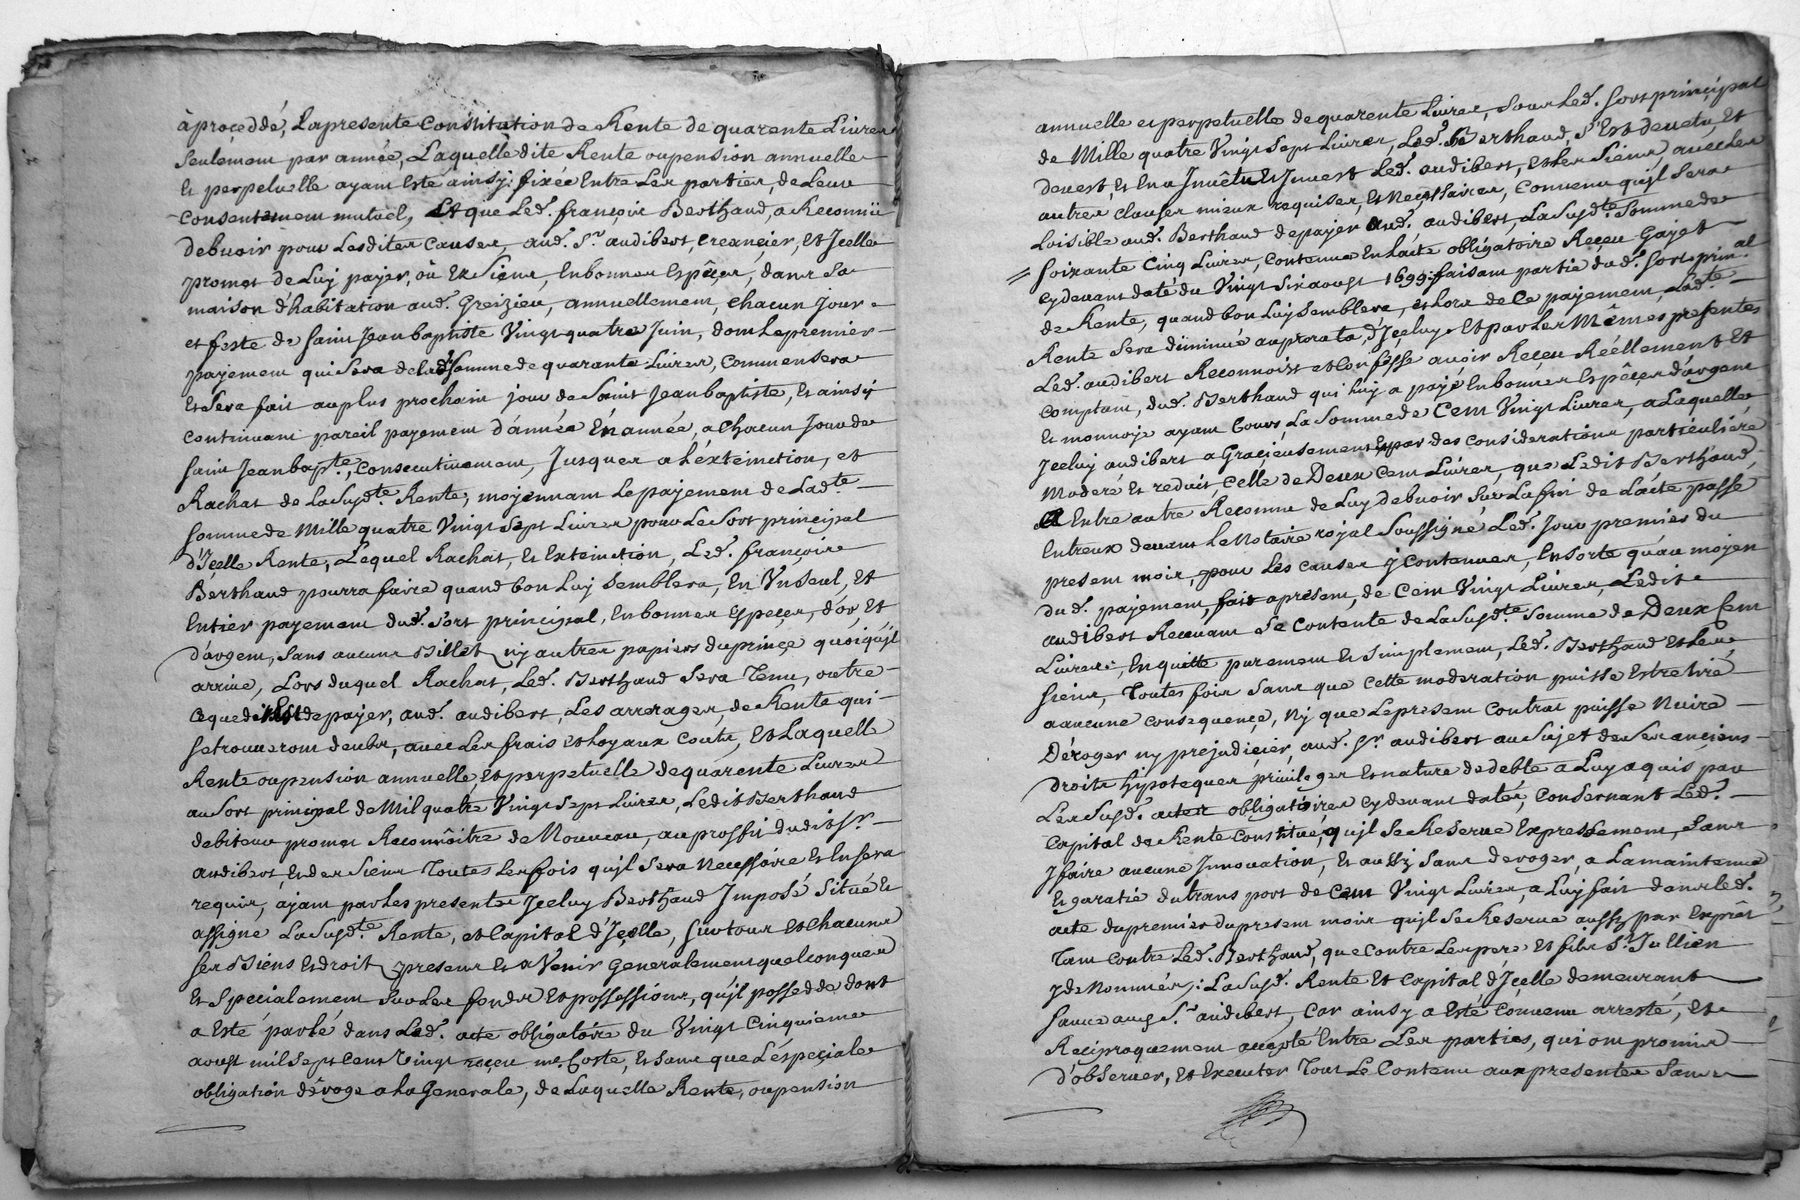 à proçeddé, Lapresente Constitution de Rente de quarente Livres
seulement par année, Laquelle dite Rente oupension annuelle
Et perpetuelle ayant Esté ainsy fixée Entre Les parties, de Leur
Consentement mutuel, Et que Led. françois Berthaud, a Reconnü
debvoir pour Lesdites Causes, aud. Sr. audibert, creançier, Et Jcelle
promet de Luy payer, où Ez Siens, Enbonnes Espêçes, dans Sa
maison d'habitation aud. Greizieu, annuellement, chacun jour
et feste de Saint Jean baptiste Vingt quatre Juin, dont Lepremier
payement qui Sera de Lad. Somme de quarante Livres, commensera
Et Sera fait auplus prochain jour de Saint Jean baptiste, Et ainsy
continuant pareil payement d'année En année, a chacun Jour de
Saint Jean bapte., consecutivement, Jusques a L'éxteinction, et
Rachat de La Susdte. Rente, moyennant Le payement de Ladte.
Somme de Mille quatre Vingt Sept Livres pour Le Sort principal
d'Jçelle Rente, Lequel Rachat, Et Exteinction, Led. françois
Berthaud pourra faire quand bon Luy Semblera, En Vn Seul, Et
Entier payement dud. Sort principal, Enbonnes Espeçes, d'or, Et
d'argent, Sans aucuns Billets ny autres papiers duprinçe quoiqu'jl
arrive, Lors duquel Rachat, Led. Berthaud Sera Tenu, outre
ceque dit Est de payer, aud. audibert, Les arrerages, de Rente qui
Setrouveront deubs, avec Les frais et Loyaux Couts, Et Laquelle
Rente oupension annuelle, et perpetuelle de quarente Livres
au Sort principal de Mil quatre Vingt Sept Livres, Ledit Berthaud
debiteur promet Reconnoitre de Nouveau, auproffit dudit Sr.
audibert, Et des Siens Toutes Les fois qu'jl Sera Necessaire Et En Sera
requis, ayant par Les presentes Jceluy Berthaud Jmposé Situé Et
assigné La Susdte. Rente, et Capital d'Jçelle, Sur tous Et Chacuns
Ses Biens Et droits presens Et a Venir Generalement quelconques
Et Specialement Sur Les fonds Et possessions, qu'jl possedde dont
a Esté parlé dans Led. acte obligatoire du Vingt Cinquieme
aoust mil Sept Cent Vingt reçeu me. Coste, Et Sans que L'espeçiale
obligation déroge a La Generale, de Laquelle Rente, oupension
annuelle et perpetuelle de quarente Livres, Sous Led. Sort principal
de Mille quatre Vingt Sept Livres, Led. Berthaud, S'Est devetu, Et
devest, Et En a Jnvêtu Et Jnvest Led. audibert, Et Les Siens, avec Les
autres clauses mieux requises, Et Neçessaires, Convenu qu'jl Sera
Loisible aud. Berthaud de payer aud. audibert, La Susdte. Somme de
Soixante Cinq Livres, Contenue En Lacte obligatoire Reçeu Gayet
cydevant daté du Vingt Six aoust 1699, faisant partie dud. Sort prin.al
de Rente, quand bon Luy Semblera, et Lors de Ce payement, Ladte.
Rente Sera diminué auprorata d'Jçeluy. Et par Les Mêmes presentes
Led. audibert Reconnoist et Confesse avoir Reçeu Réellement Et
Comptant, dud. Berthaud qui Luy a payé Enbonnes Espêçes d'argent
Et monnoye ayant Cours La Somme de Cent Vingt Livres, a Laquelle
Jceluy audibert a Graçieusement Et par des Considerations particulieres
Moderé Et reduit, Celle de Deux Cent Livres, que Ledit Berthaud,
a Entre autre Reconnu de Luy debvoir, Sur La fin de Lacte passé
Entreux devant Le Notaire royal Soussigné Led. Jour premier du
present mois, pour Les Causes y Contenues, En Sorte qu'au moyen
dud. payement, fait apresent, de Cent Vingt Livres, Ledit
audibert Recevant Se Contente de La Susdte. Somme de Deux Cent
Livres, En quitte purement Et Simplement, Led. Berthaud Et Les
Siens, Toutes fois Sans que Cette moderation puisse Estre tiré
a aucune Consequençe, Ny que Lepresent Contrat puisse Nuire
Déroger ny prejudiçier, aud. Sr. audibert au Sujet de Ses anciens
droits hypoteques privileges Et nature de debte a Luy aquis par
Les Susd. actes obligatoires cy devant datés, Concernant Led.
Capital de Rente Constitué, qu'jl Se Reserve Expressement, Sans
y faire aucune Jnnovation, Et aussy Sans deroger, a La maintenue
Et garatié du transport de Cent Vingt Livres, a Luy fait dans Led.
acte dupremier dupresent mois qu'jl Se Reserve aussy par Exprès
Tant Contre Led. Berthaud, que Contre Les pere Et fils Sr. Jullien
y denommés; La Susd. Rente Et Capital d'Jçelle demeurant
Sauve aud. Sr. audibert, Car ainsy a Esté Convenu arresté, Et
Reçiproquement accepté Entre Les parties, qui ont promis
d'observer, Et Executer Tout Le Contenu aux presentes Sans